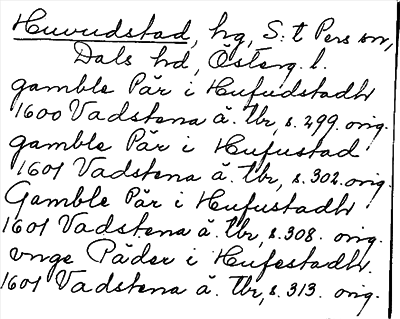 Huvudstad, hg, S:t Pers sn,
Dals hd, Österg. l.
gamble Pär i Hufudstadh
1600 Vadstena ä. tbr, s. 299. orig.
gamble Pär i Hufustad
1601 Vadstena ä. tbr, s. 302. orig.
Gamble Pär i Hufustadh
1601 Vadstena ä. tbr, s. 308. orig.
vnge Päder i Hufestadh.
1601 Vadstena ä. tbr, s. 313. orig.